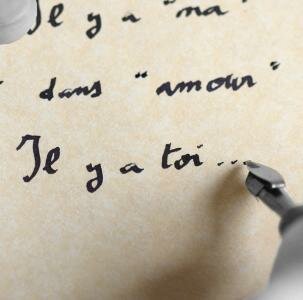 Il y a "ma"
" dans "amour"
Il y a toi...